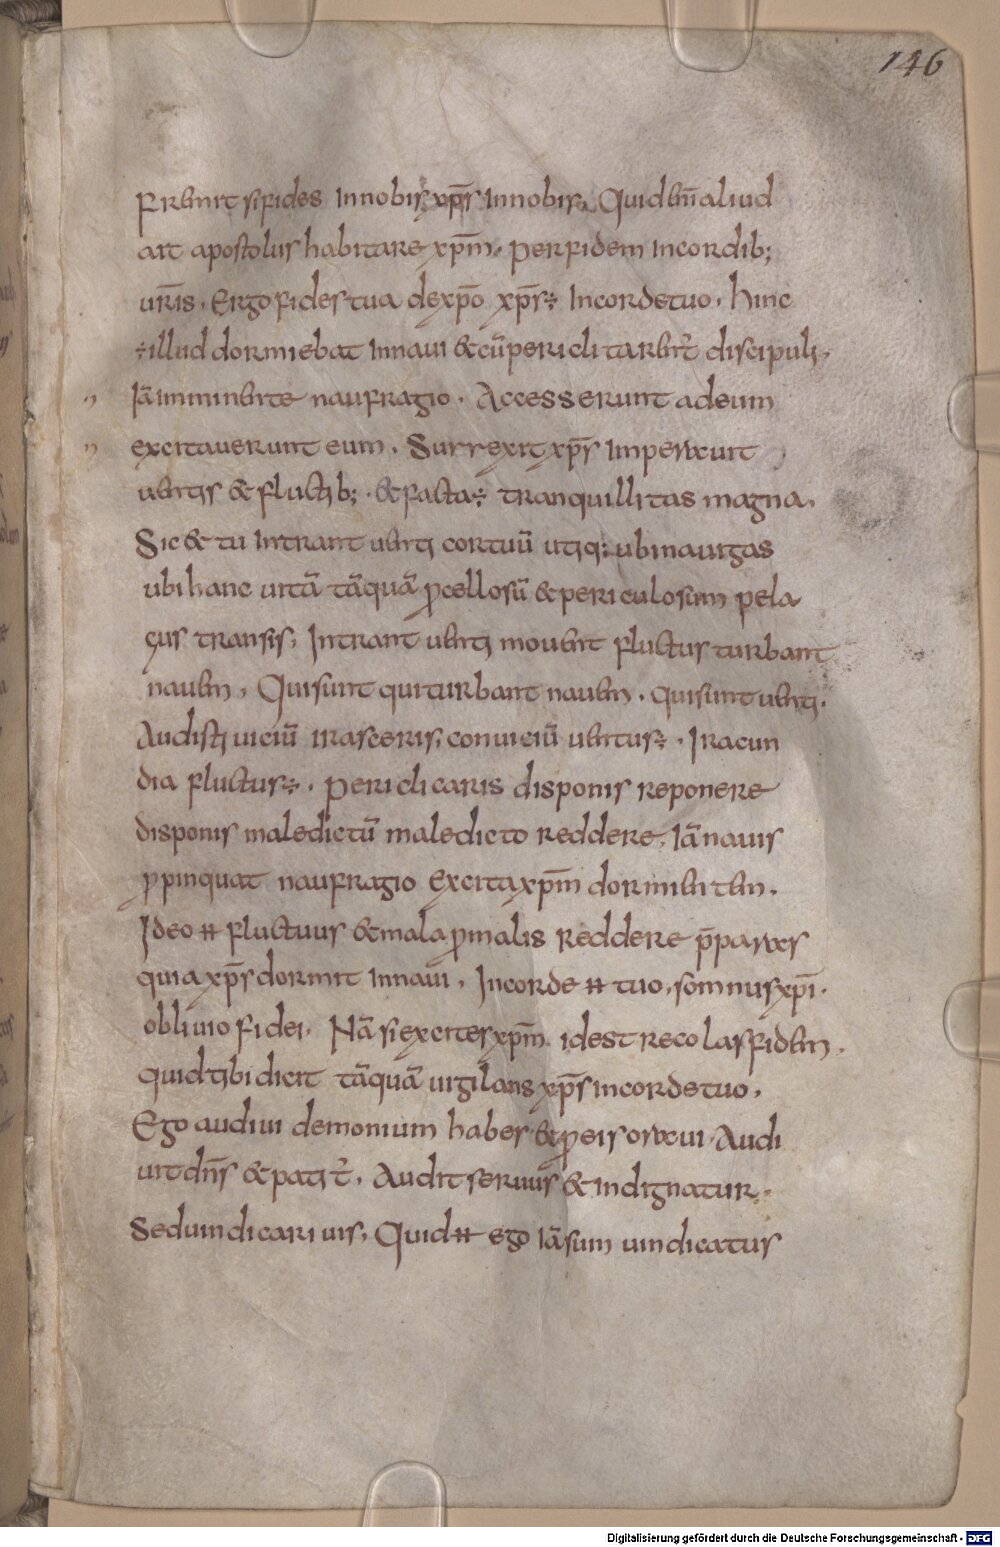 146
Prensit si fides In nobis xp̄s In nobis. Quid eni͞m aliud
ait apostolus habitare xp̄m. per fidem In cordib;
ur̄is. Ergo fides tua de xp̄o xp̄s ÷ In corde tuo. hinc
÷ illud dormiebat In naui & cū periclitarent̄ discipuli.
Iā imminente naufragio. Accesserunt ad eum
excitauerunt eum. Surrexit xp̄s Imperauit
uentis & fluctib; . & facta ÷ tranquillitas magna.
Sic & tu Intrant uenti cor tuū utiq; ubi nauigas
ubi hanc uitā tāquā procellosū & periculosum pela
gus transis. Intrant uenti mouent fluctus turbant
nauem. Qui sunt qui turbant nauem. qui sunt uenti.
Audisti uiciū irasceris, conuiciū uentus ÷ . Iracun
dia fluctus ÷ . periclicaris disponis reponere
disponis maledictū maledicto reddere. Iā nauis
propinquat naufragio Excita xp̄m dormientem.
Ideo H fluctuus & mala pro malis Reddere p̄paras
quia xp̄s dormit In naui. In corde H tuo. somnus xp̄i.
obliuio fidei. Nā si excites xp̄m. id est recolas fidem.
quid tibi dicit tāquā uigilans xp̄s in corde tuo.
Ego audiui demonium habes & pro eis oraui. Audi
uit dn̄s & patit̄. Audit seruus & indignatur.
Sed uindicari uis. Quid H ego Iā sum uindicatus
Digitalisierung gefördert durch die Deutsche Forschungsgemeinschaft - DFG